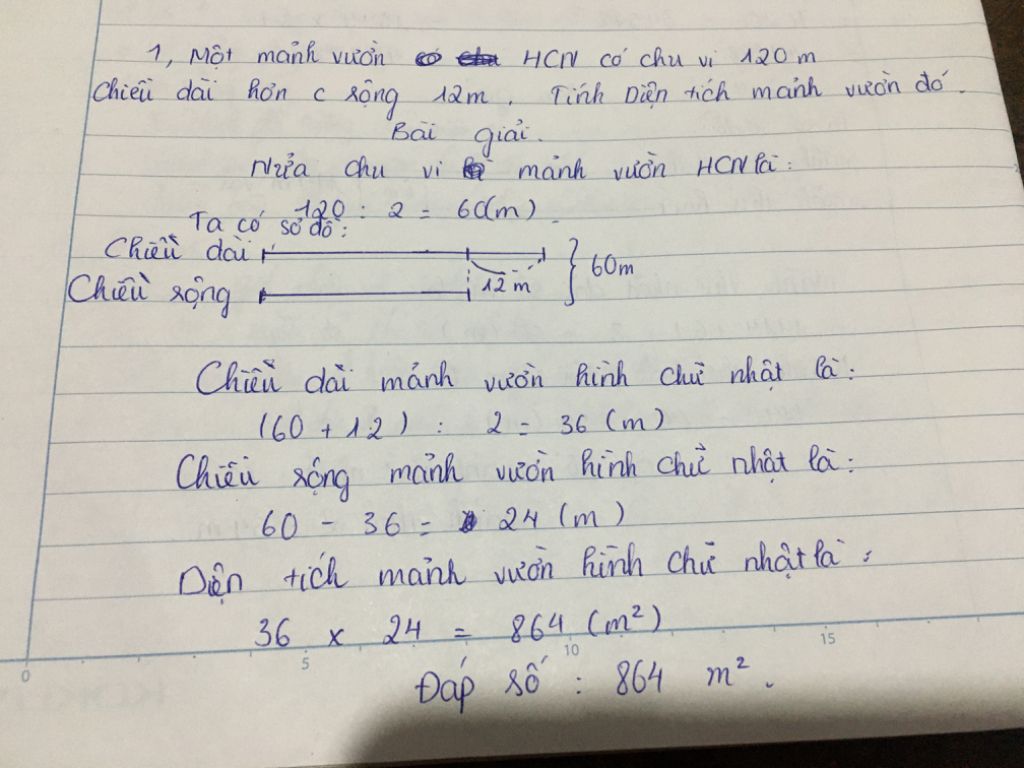 1, Một mảnh vườn HCN có chu vi 120 m
Chiều dài hơn c rộng 12m. Tính Diện tích mảnh vườn đó.
Bài giải.
Nửa chu vi mảnh vườn HCN là:
120 : 2 = 60(m)
Ta có sơ đồ:
Chiều dài
12 m
60m
Chiều rộng
Chiều dài mảnh vườn hình chữ nhật là:
(60 + 12) : 2 = 36 (m)
Chiều rộng mảnh vườn hình chữ nhật là:
60 - 36 = 24 (m)
Diện tích mảnh vườn hình chữ nhật là:
36 x 24 = 864 (m²)
0 5 10 15
Đáp số : 864 m².